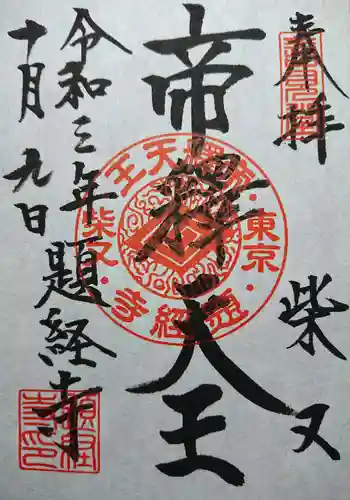 奉拝
柴又
帝釋天王
帝釋天王・東京・題経寺・柴又
令和三年
十月九日
題経寺
題経寺印